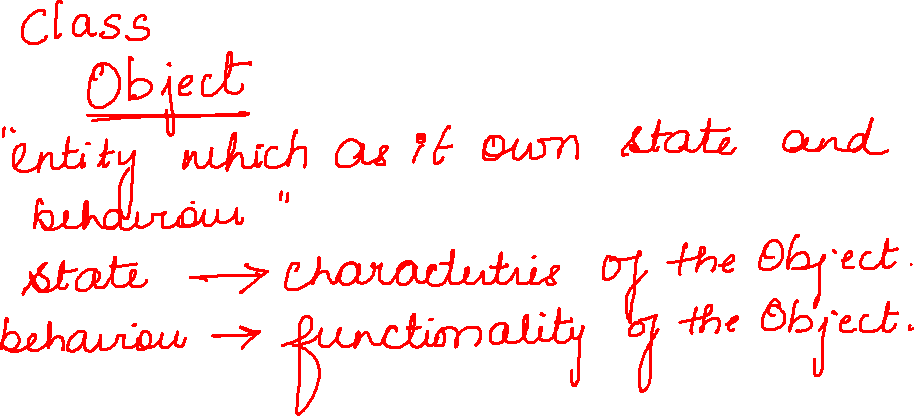 Class
Object
"entity which as it own state and
behaviour"
state → charactertics of the Object.
behaviour → functionality of the Object.